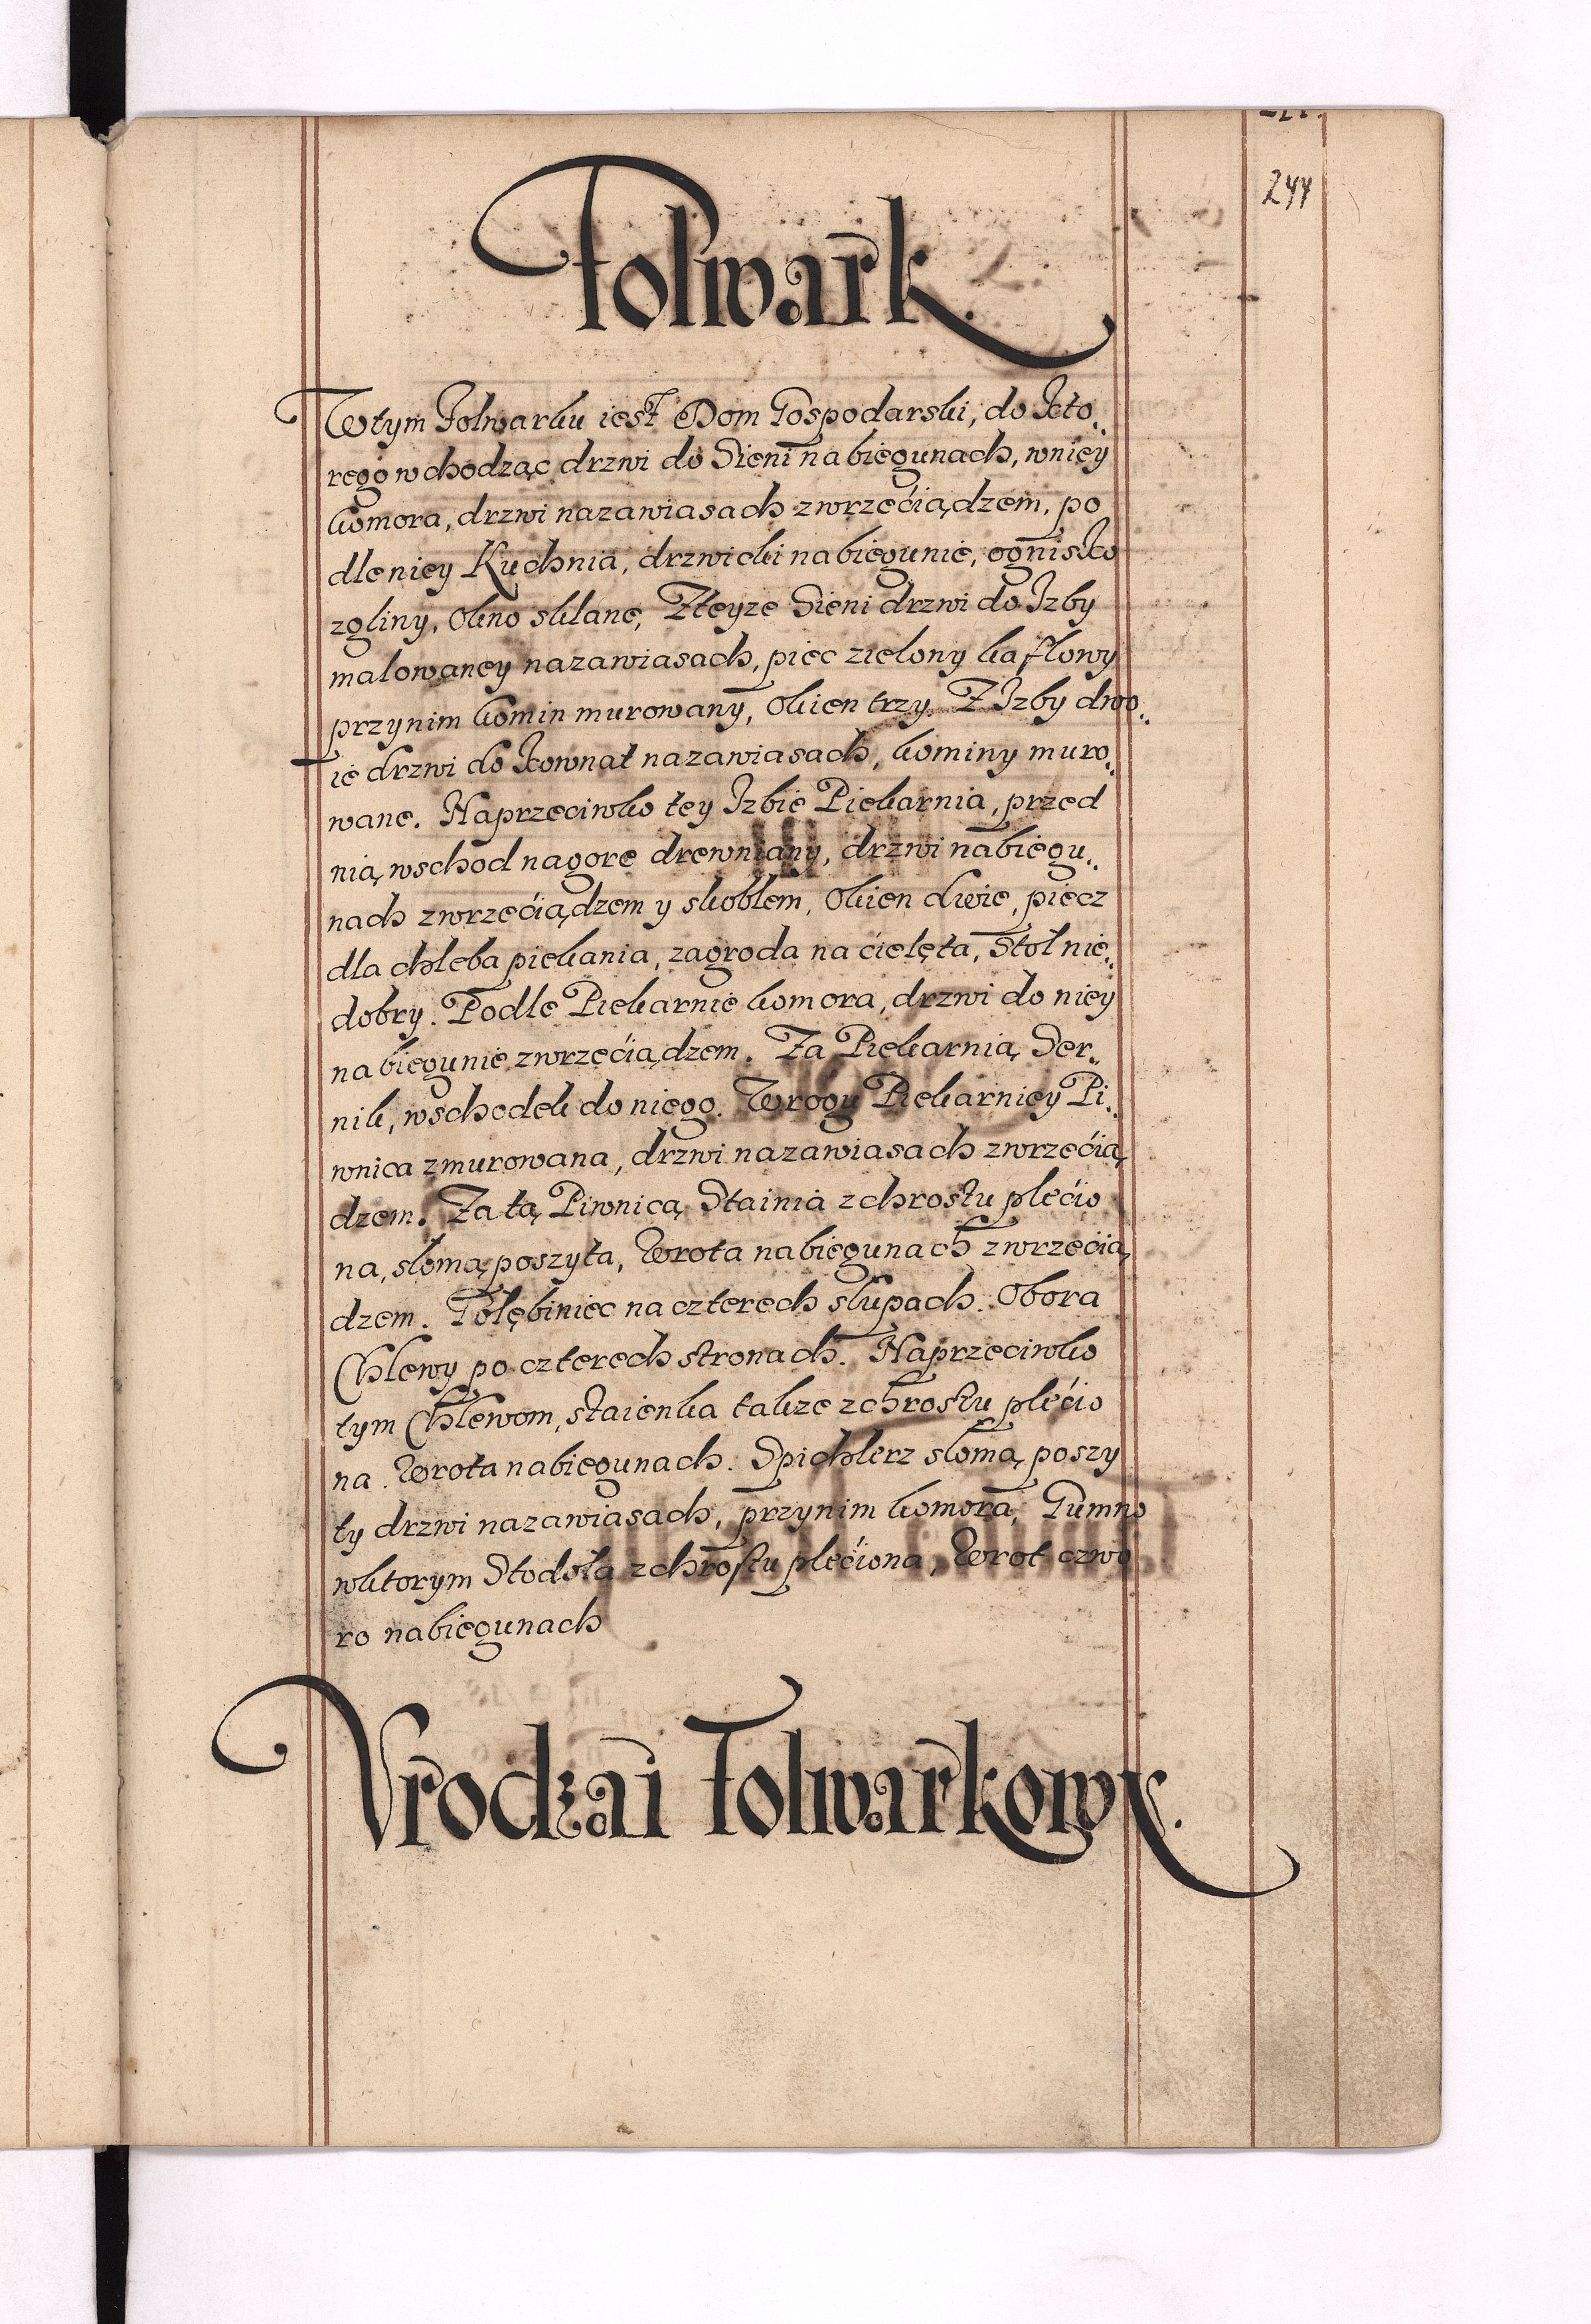 244
Folwark.
W tym Folwarku iest Dom Gospodarski, do Kto„
rego wchodząc drzwi do Sieni na biegunach, w niey
komora, drzwi na zawiasach z wrzeciądzem, po
dle niey Kuchnia, drzwiczki na biegunie, ognisko
z gliny, Okno sklane, Z teyze Sieni drzwi do Izby
malowaney na zawiasach, piec zielony kaflowy
przy nim komin murowany, Okien trzy. Z Izby dwo„
ie drzwi do Kownat na zawiasach, kominy muro„
wane. Naprzeciwko tey Izbie Piekarnia, przed
nią wschod na gorę drewniany, drzwi na biegu„
nach z wrzeciądzem y skoblem, Okien dwie, piecz
dla chleba piekania, zagroda na cielęta, Stol nie„
dobry. Podle Piekarnie komora, drzwi do niey
na biegunie z wrzeciądzem. Za Piekarnią Ser„
nik, wschodek do niego. W rogu Piekarniey Pi„
wnica zmurowana, drzwi na zawiasach z wrzecią
dzem. Za tą Piwnicą Stainia z chrostu plecio
na, słomą poszyta, Wrota na biegunach z wrzecią
dzem. Gołębiniec na czterech słupach. Obora
Chlewy po czterech stronach. Naprzeciwko
tym Chlewom, staienka takze z chrostu plecio
na. Wrota na biegunach. Spichlerz słomą poszy
ty drzwi na zawiasach, przy nim komora, Gumno
w ktorym Stodoła z chrostu pleciona, Wrot czwo
ro na biegunach
Vrodzai Folwarkowy.